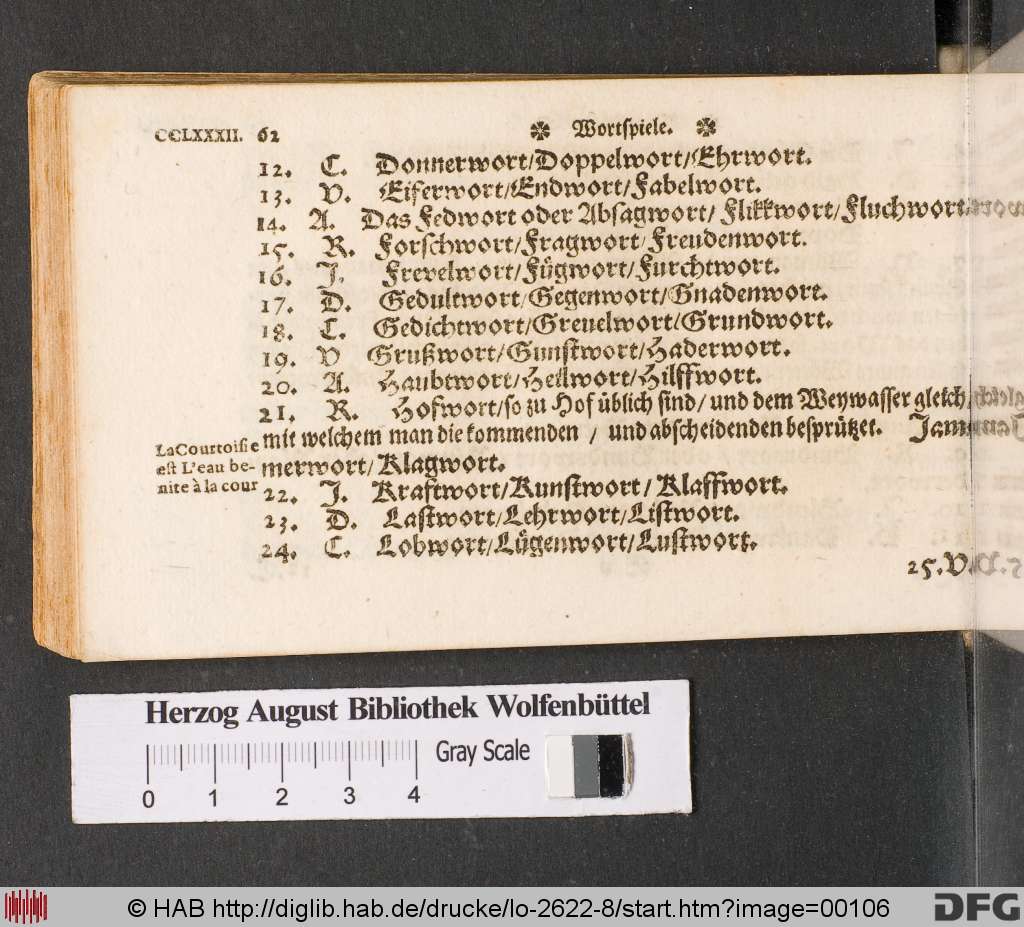 CCLXXXII. 62 Wortspiele.
12. C. Donnerwort/Doppelwort/Ehrwort.
13. V. Eiferwort/Endwort/Fabelwort.
14. A. Das Fedwort oder Absagwort/ Flikkwort/Fluchwort.
15. R. Forschwort/Fragwort/Freudenwort.
16. J. Frevelwort/Fügwort/Furchtwort.
17. D. Gedultwort/Gegenwort/Gnadenwort.
18. C. Gedichtwort/Greuelwort/Grundwort.
19. V Grußwort/Gunstwort/Haderwort.
20. A. Haubtwort/Heilwort/Hilffwort.
21. R. Hofwort/so zu Hof üblich sind/ und dem Weywasser gleich,
mit welchem man die kommenden / und abscheidenden besprützet. Jam-
merwort/Klagwort.
La Courtoisie
est L'eau be-
nite à la cour
22. J. Kraftwort/Kunstwort/ Klaffwort.
23. D. Lastwort/Lehrwort/Listwort.
24. C. Lobwort/Lügenwort/Lustwort.
25. V.
Herzog August Bibliothek Wolfenbüttel
Gray Scale
0 1 2 3 4
© HAB http://diglib.hab.de/drucke/lo-2622-8/start.htm?image=00106
DFG